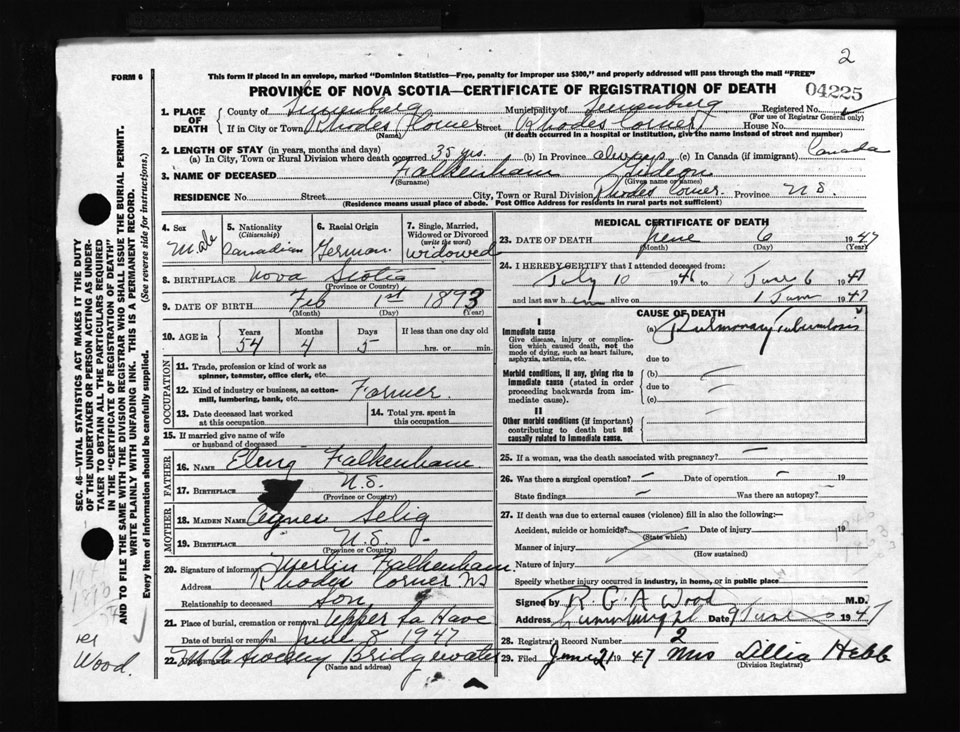 2
FORM 6
This form if placed in an envelope, marked "Dominion Statistics—Free, penalty for improper use $300," and properly addressed will pass through the mail "FREE"
PROVINCE OF NOVA SCOTIA—CERTIFICATE OF REGISTRATION OF DEATH
04225
1. PLACE OF DEATH
County of Lunenburg Municipality of Lunenburg Registered No.
(For use of Registrar General only)
If in City or Town Rhodes Corner Street Rhodes Corner House No.
(Name) (If death occurred in a hospital or institution, give the name instead of street and number)
2. LENGTH OF STAY (in years, months and days)
(a) In City, Town or Rural Division where death occurred 35 yrs. (b) In Province always (c) In Canada (if immigrant) Canada
3. NAME OF DECEASED Falkenham Gideon
(Surname) (Given name or names)
RESIDENCE No. Street City, Town or Rural Division Rhodes Corner. Province N.S.
(Residence means usual place of abode. Post Office Address for residents in rural parts not sufficient)
4. Sex Male
5. Nationality (Citizenship) Canadian
6. Racial Origin German
7. Single, Married, Widowed or Divorced (write the word) widowed
8. BIRTHPLACE Nova Scotia
(Province or Country)
9. DATE OF BIRTH Feb 1st 1893
(Month) (Day) (Year)
10. AGE in Years Months Days If less than one day old
54 4 5 hrs. or min.
OCCUPATION
11. Trade, profession or kind of work as spinner, teamster, office clerk, etc.
12. Kind of industry or business, as cotton-mill, lumbering, bank, etc. Farmer.
13. Date deceased last worked at this occupation
14. Total yrs. spent in this occupation
15. If married give name of wife or husband of deceased
FATHER
16. NAME Falkenham
17. BIRTHPLACE N.S.
(Province or Country)
MOTHER
18. MAIDEN NAME Agnes Selig
19. BIRTHPLACE N.S.
(Province or Country)
20. Signature of informant Merlin Falkenham.
Address Rhodes Corner NS
Relationship to deceased Son
21. Place of burial, cremation or removal Upper La Have
Date of burial or removal June 8 1947
22. Bridgewater
(Name and address)
MEDICAL CERTIFICATE OF DEATH
23. DATE OF DEATH June 6 1947
(Month) (Day) (Year)
24. I HEREBY CERTIFY that I attended deceased from:
July 10 1946 June 6 1947
and last saw him alive on 1 June 1947
CAUSE OF DEATH
I
Immediate cause
Give disease, injury or complication which caused death, not the mode of dying, such as heart failure, asphyxia, asthenia, etc.
(a) Pulmonary tuberculosis
due to
Morbid conditions, if any, giving rise to immediate cause (stated in order proceeding backwards from immediate cause).
(b)
due to
(c)
II
Other morbid conditions (if important) contributing to death but not causally related to immediate cause.
25. If a woman, was the death associated with pregnancy?
26. Was there a surgical operation? Date of operation 19
State findings Was there an autopsy?
27. If death was due to external causes (violence) fill in also the following:—
Accident, suicide or homicide? Date of injury 19
(State which)
Manner of injury
(How sustained)
Nature of injury
Specify whether injury occurred in industry, in home, or in public place
Signed by R. G. A Wood M.D.
Address Date 9 June 1947
28. Registrar's Record Number 2
29. Filed June 21 1947 Mrs Lillia Hebb
(Division Registrar)
SEC. 46—VITAL STATISTICS ACT MAKES IT THE DUTY
OF THE UNDERTAKER OR PERSON ACTING AS UNDER-
TAKER TO OBTAIN ALL THE PARTICULARS REQUIRED
IN THE "CERTIFICATE OF REGISTRATION OF DEATH"
AND TO FILE THE SAME WITH THE DIVISION REGISTRAR WHO SHALL ISSUE THE BURIAL PERMIT.
WRITE PLAINLY WITH UNFADING INK. THIS IS A PERMANENT RECORD.
Every item of information should be carefully supplied. (See reverse side for instructions.)
Wood.